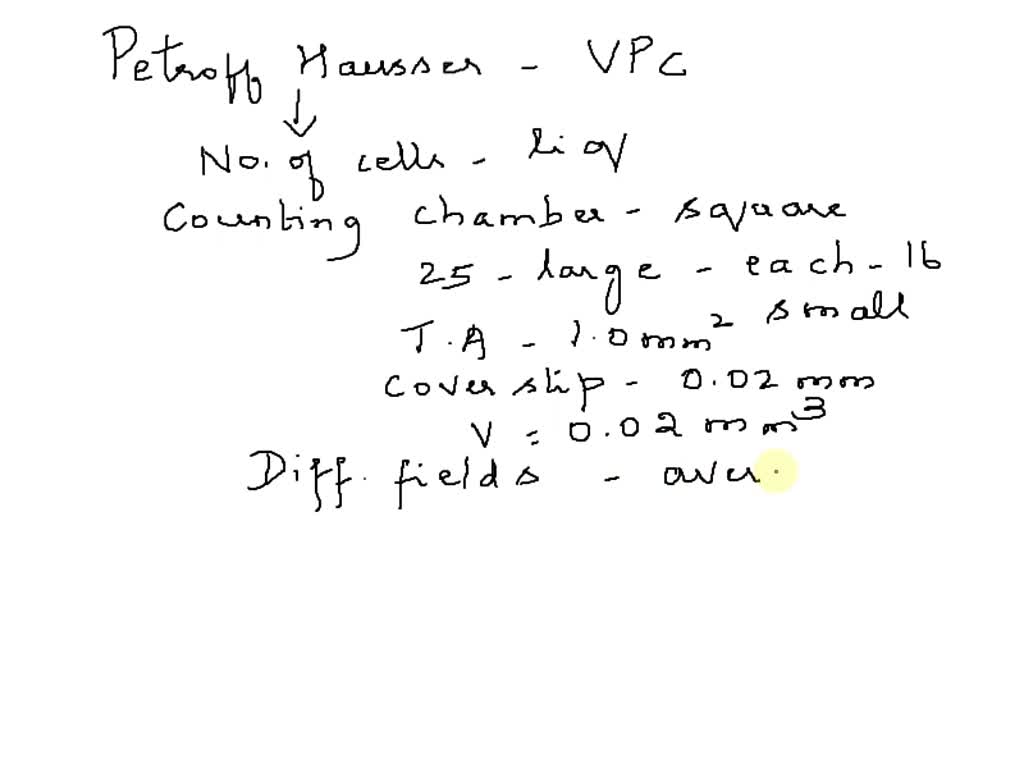 Petroff Hausser - VPC
No. of cells - liq
Counting chamber - square
25 - large - each - 16
small
T.A - 1.0 mm²
cover slip - 0.02 mm
V = 0.02 mm³
Diff. fields - aver